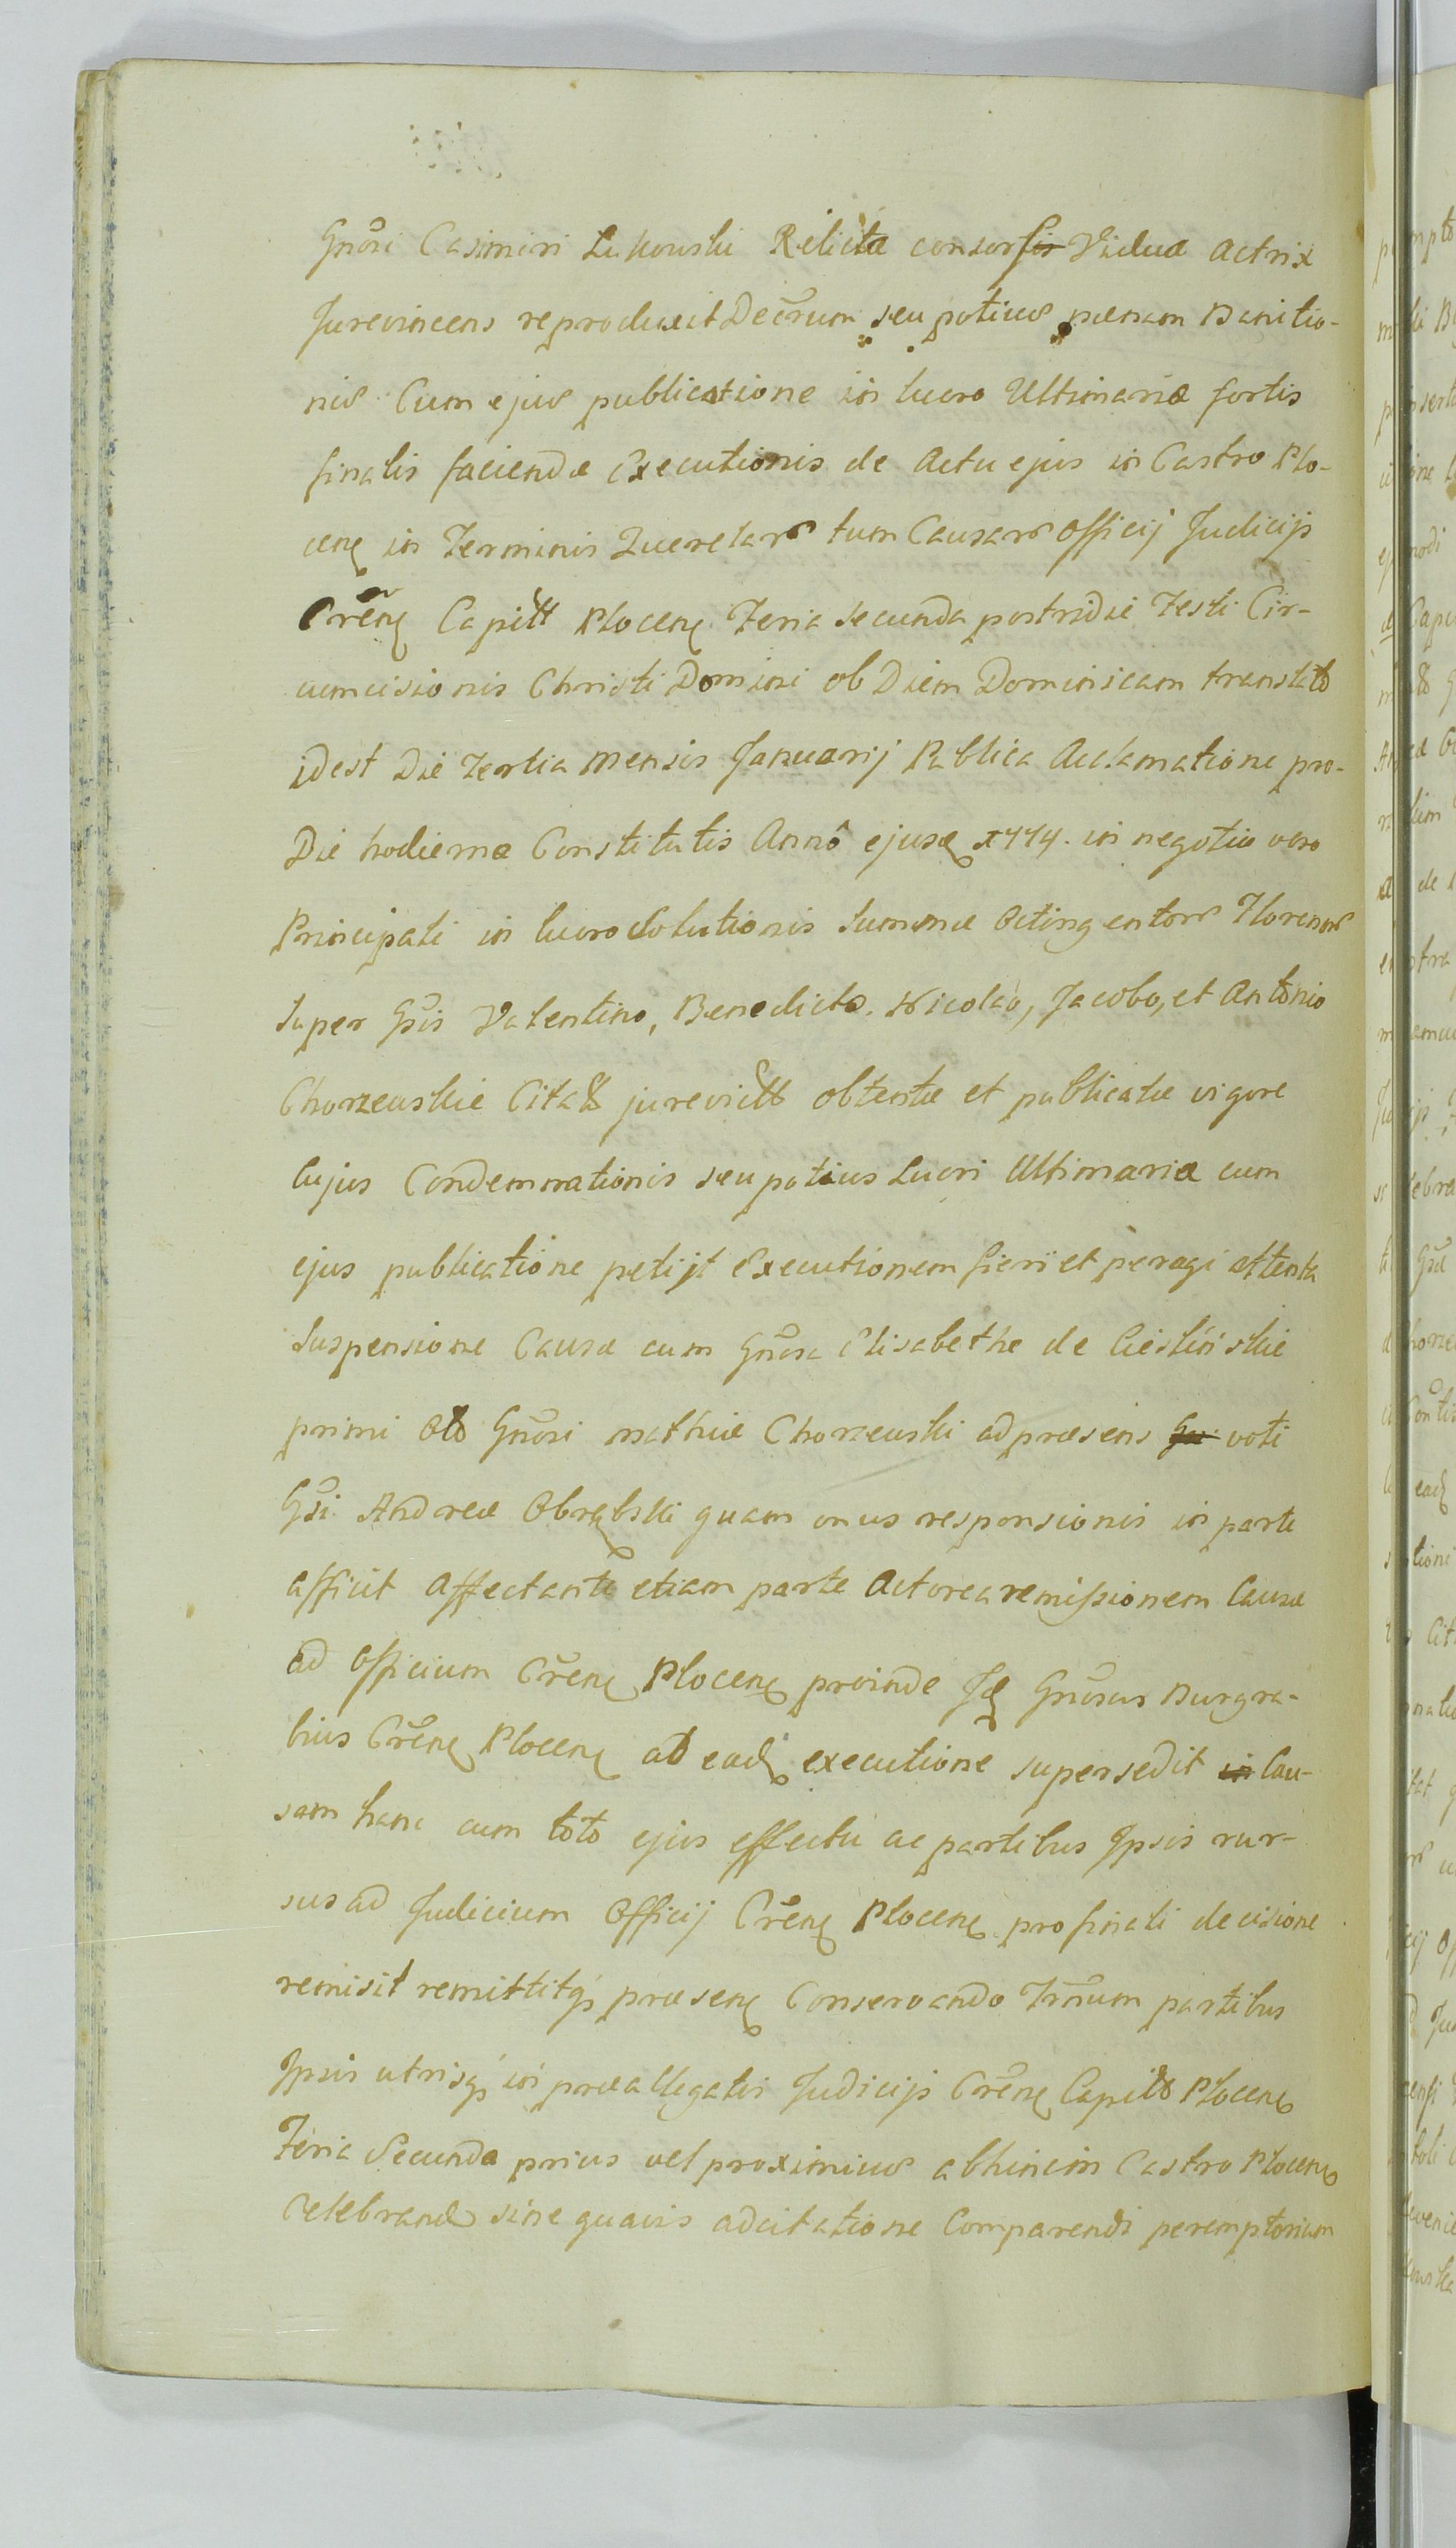 Gnõsi Casimiri Lukowski Relictæ consor Viduæ Actrix
Jurevincens reproduxit Decrum seu potius pœnam Banitio-
nis Cum ejus publicatione in lucro Ultimariæ fortis
finalis faciendæ Executionis de Actu ejus in Castro Plo-
cen in Terminis Querelar tum Causar Officij Judicijs
Crẽn Capitt Plocen Feria Secunda postridie Festi Cir-
cumcisionis Christi Domini ob Diem Dominicam translato
idest Die Tertia Mensis Januarij Publica Acclamatione pro-
Die hodierna Constitutis Annô ejusd in negotio vero
Principali in lucro Solutionis Summæ Octingentor Florenor
Super Gsis Valentino, Benedicto, Nicolao, Jacobo, et Antonio
Chorzewskie Citatt jurevictt obtentæ et publicatæ vigore
Cujus Condemnationis seu potius Lucri Ultimariæ cum
ejus publicatione petijt Executionem fieri et peragi attenta
Suspensione Causæ cum Gnõsa Elisabethe de Cieslińskie
primi Gnõsi Mathiæ Chorzewski ad præsens voti
Gsi Andreæ Obrębski quam onus responsionis in parte
afficit Affectante etiam parte Actorea remissionem Causæ
ad Officium Crẽn Plocen proinde Id Gnõsus Burgra-
bius Crẽn Plocen ab ead executione supersedit Cau-
sam hanc cum toto ejus effectu ac partibus Ipsis rur-
sus ad Judicium Officij Crẽn Plocen pro finali decisione
remisit remittitq præsen Conservando Trnum partibus
Ipsis utrisq in præallegatis Judicijs Crẽn Capitt Plocen
Feria Secunda prius vel proximius abhinc in Castro Plocen
Celebrand sine quavis adcitatione Comparendi peremptorium